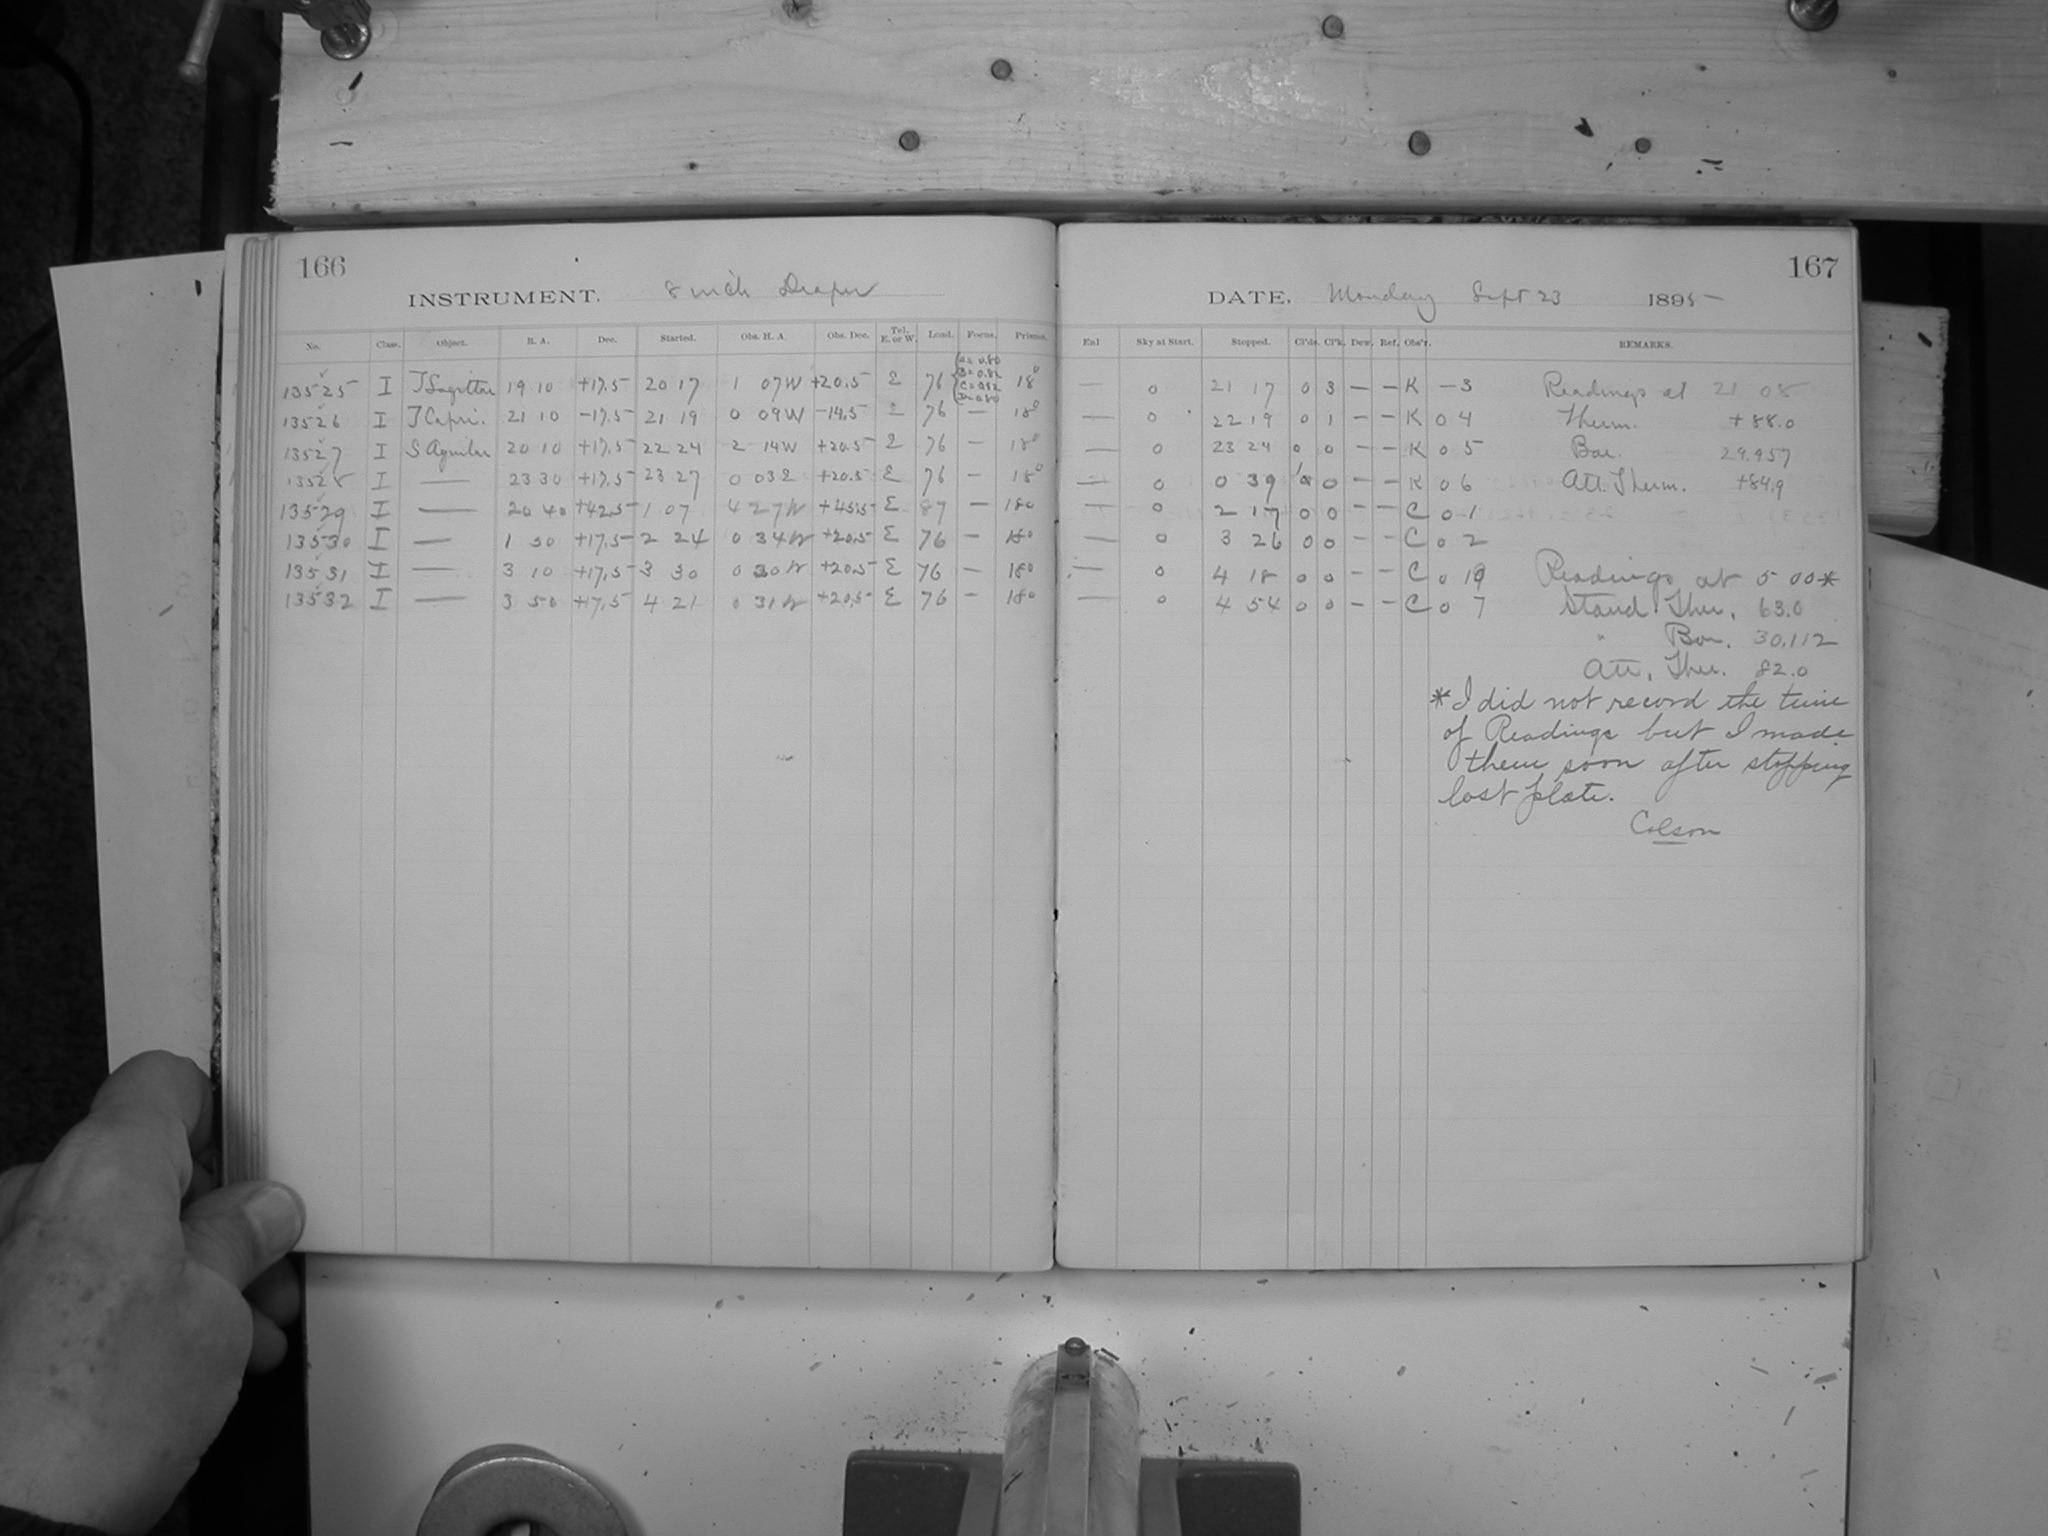 166
INSTRUMENT. 8 inch Draper
No. Class. Object. R. A. Dec. Started. Obs. H. A. Obs. Dec. Tel. E. or W. Load. Focus. Prisms.
13525 I T Sagittae 19 10 +17.5 20 17 1 07W +20.5 E 76 A=0.80 B=0.82 C=0.82 D=0.80 18°
13526 I T Capri. 21 10 -17.5 21 19 0 09W -14.5 E 76 — 18°
13527 I S Aquilae 20 10 +17.5 22 24 2 14W +20.5 E 76 — 18°
13528 I — 23 30 +17.5 23 27 0 03E +20.5 E 76 — 18°
13529 I — 20 40 +42.5 1 07 4 27W +45.5 E 87 — 180
13530 I — 1 50 +17.5 2 24 0 34W +20.5 E 76 — 180
13531 I — 3 10 +17.5 3 30 0 20W +20.5 E 76 — 180
13532 I — 3 50 +17.5 4 21 0 31W +20.5 E 76 — 180
167
DATE. Monday Sept 23 1895
Exl Sky at Start. Stopped. Cl'ds. Cl'k. Dew. Ref. Obs'r. REMARKS.
— 0 21 17 0 3 — — K — 3 Readings at 21 05
— 0 22 19 0 1 — — K 0 4 Therm. +88.0
— 0 23 24 0 0 — — K 0 5 Bar. 29.957
— 0 0 39 0 — — K 0 6 Att. Therm. +84.9
— 0 2 17 0 0 — — C 0 1
— 0 3 26 0 0 — — C 0 2
— 0 4 18 0 0 — — C 0 Readings at 5 00*
— 0 4 54 0 0 — — C 0 7 Stand Ther. 63.0
" Bar. 30.112
Att. Ther. 82.0
* I did not record the time
of Readings but I made
them soon after stopping
last plate.
Colson